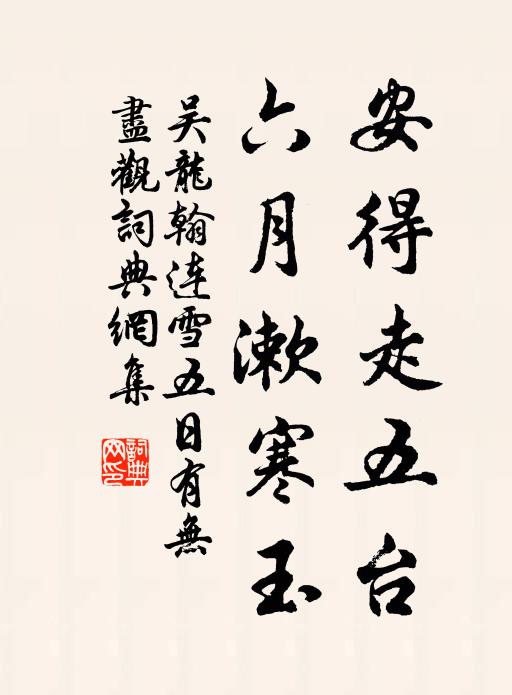 安得走五台
六月漱寒玉
吴龍翰連雪五日有無
盡觀詞典網集
詞典網印